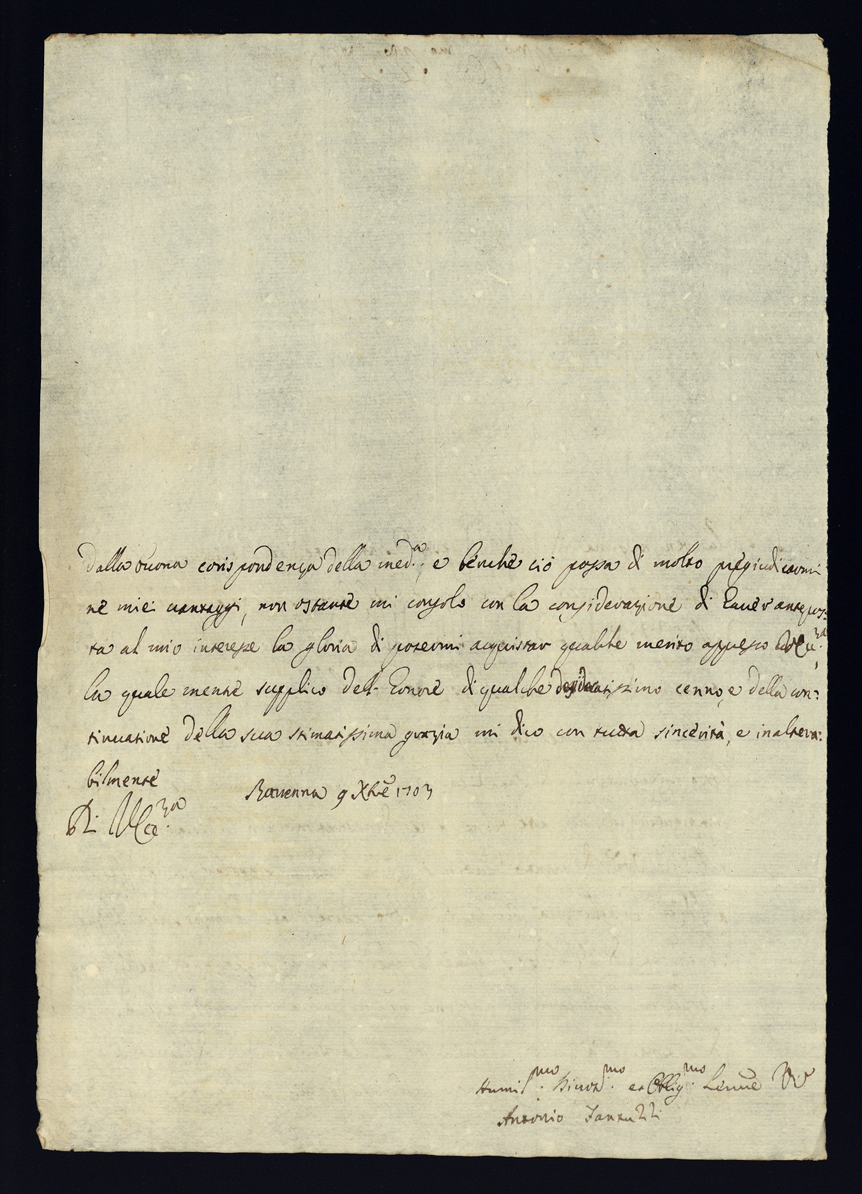 dalla buona corispondenza della med.a, e benche ciò possa di molto pregiudicarmi
ne miei vantaggi, non ostante mi consolo con la considerazione di haver antepos-
ta al mio interesse la gloria di potermi acquistar qualche merito appresso
la quale mentre supplico del honore di qualche desideratissimo cenno, e della con:
tinuatione della sua stimatissima grazia mi dico con tutta sincerità, e inaltera:
bilmente
Di
Ravenna 9 Xbre 1703
Humil.mo Divot.mo et Oblig.mo
Antonio